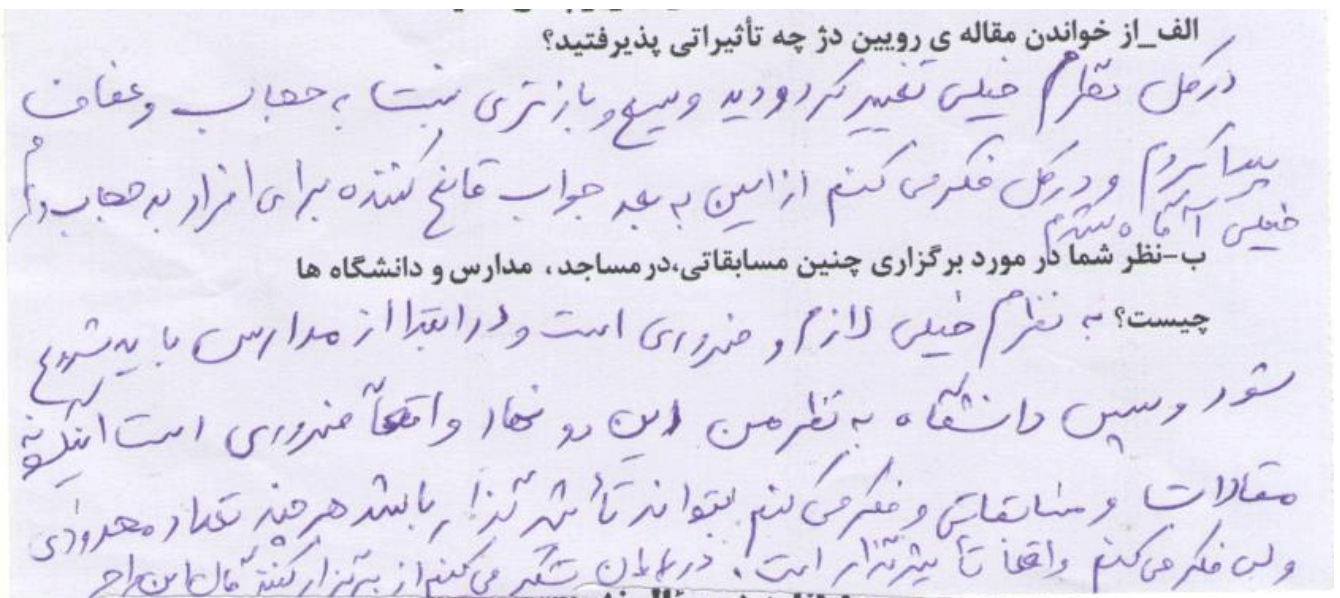 الف_از خواندن مقاله ی رویین دژ چه تأثیراتی پذیرفتید؟
درکل نظرم خیلی تغییر کرد و دید وسیع و بازتری نسبت به حجاب وعفاف
پیدا کردم و درکل فکر می کنم از این به بعد جواب قانع کننده برای افراد بد حجاب دارم
خیلی آماده شدم
ب-نظر شما در مورد برگزاری چنین مسابقاتی،در مساجد، مدارس و دانشگاه ها
چیست؟ به نظرم خیلی لازم و ضروری است و در ابتدا از مدارس باید شروع
شود و سپس دانشگاه به نظر من این دو نهاد واقعاً ضروری است اینگونه
مقالات و مسابقاتی و فکر می کنم بتواند تأثیر گذار باشد هر چند تعداد معدودی
ولی فکر می کنم واقعا تأثیرگذار است. در پایان تشکر می کنم از برگزار کنندگان این